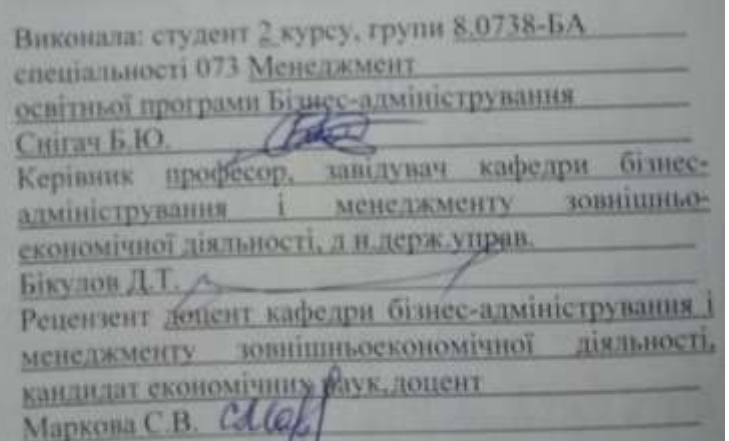 Виконала: студент 2 курсу, групи 8.0738-БА
спеціальності 073 Менеджмент
освітньої програми Бізнес-адміністрування
Снігач Б.Ю.
Керівник професор, завідувач кафедри бізнес-
адміністрування і менеджменту зовнішньо-
економічної діяльності, д.н.держ.управ.
Бікулов Д.Т.
Рецензент доцент кафедри бізнес-адміністрування і
менеджменту зовнішньоекономічної діяльності,
кандидат економічних наук, доцент
Маркова С.В.